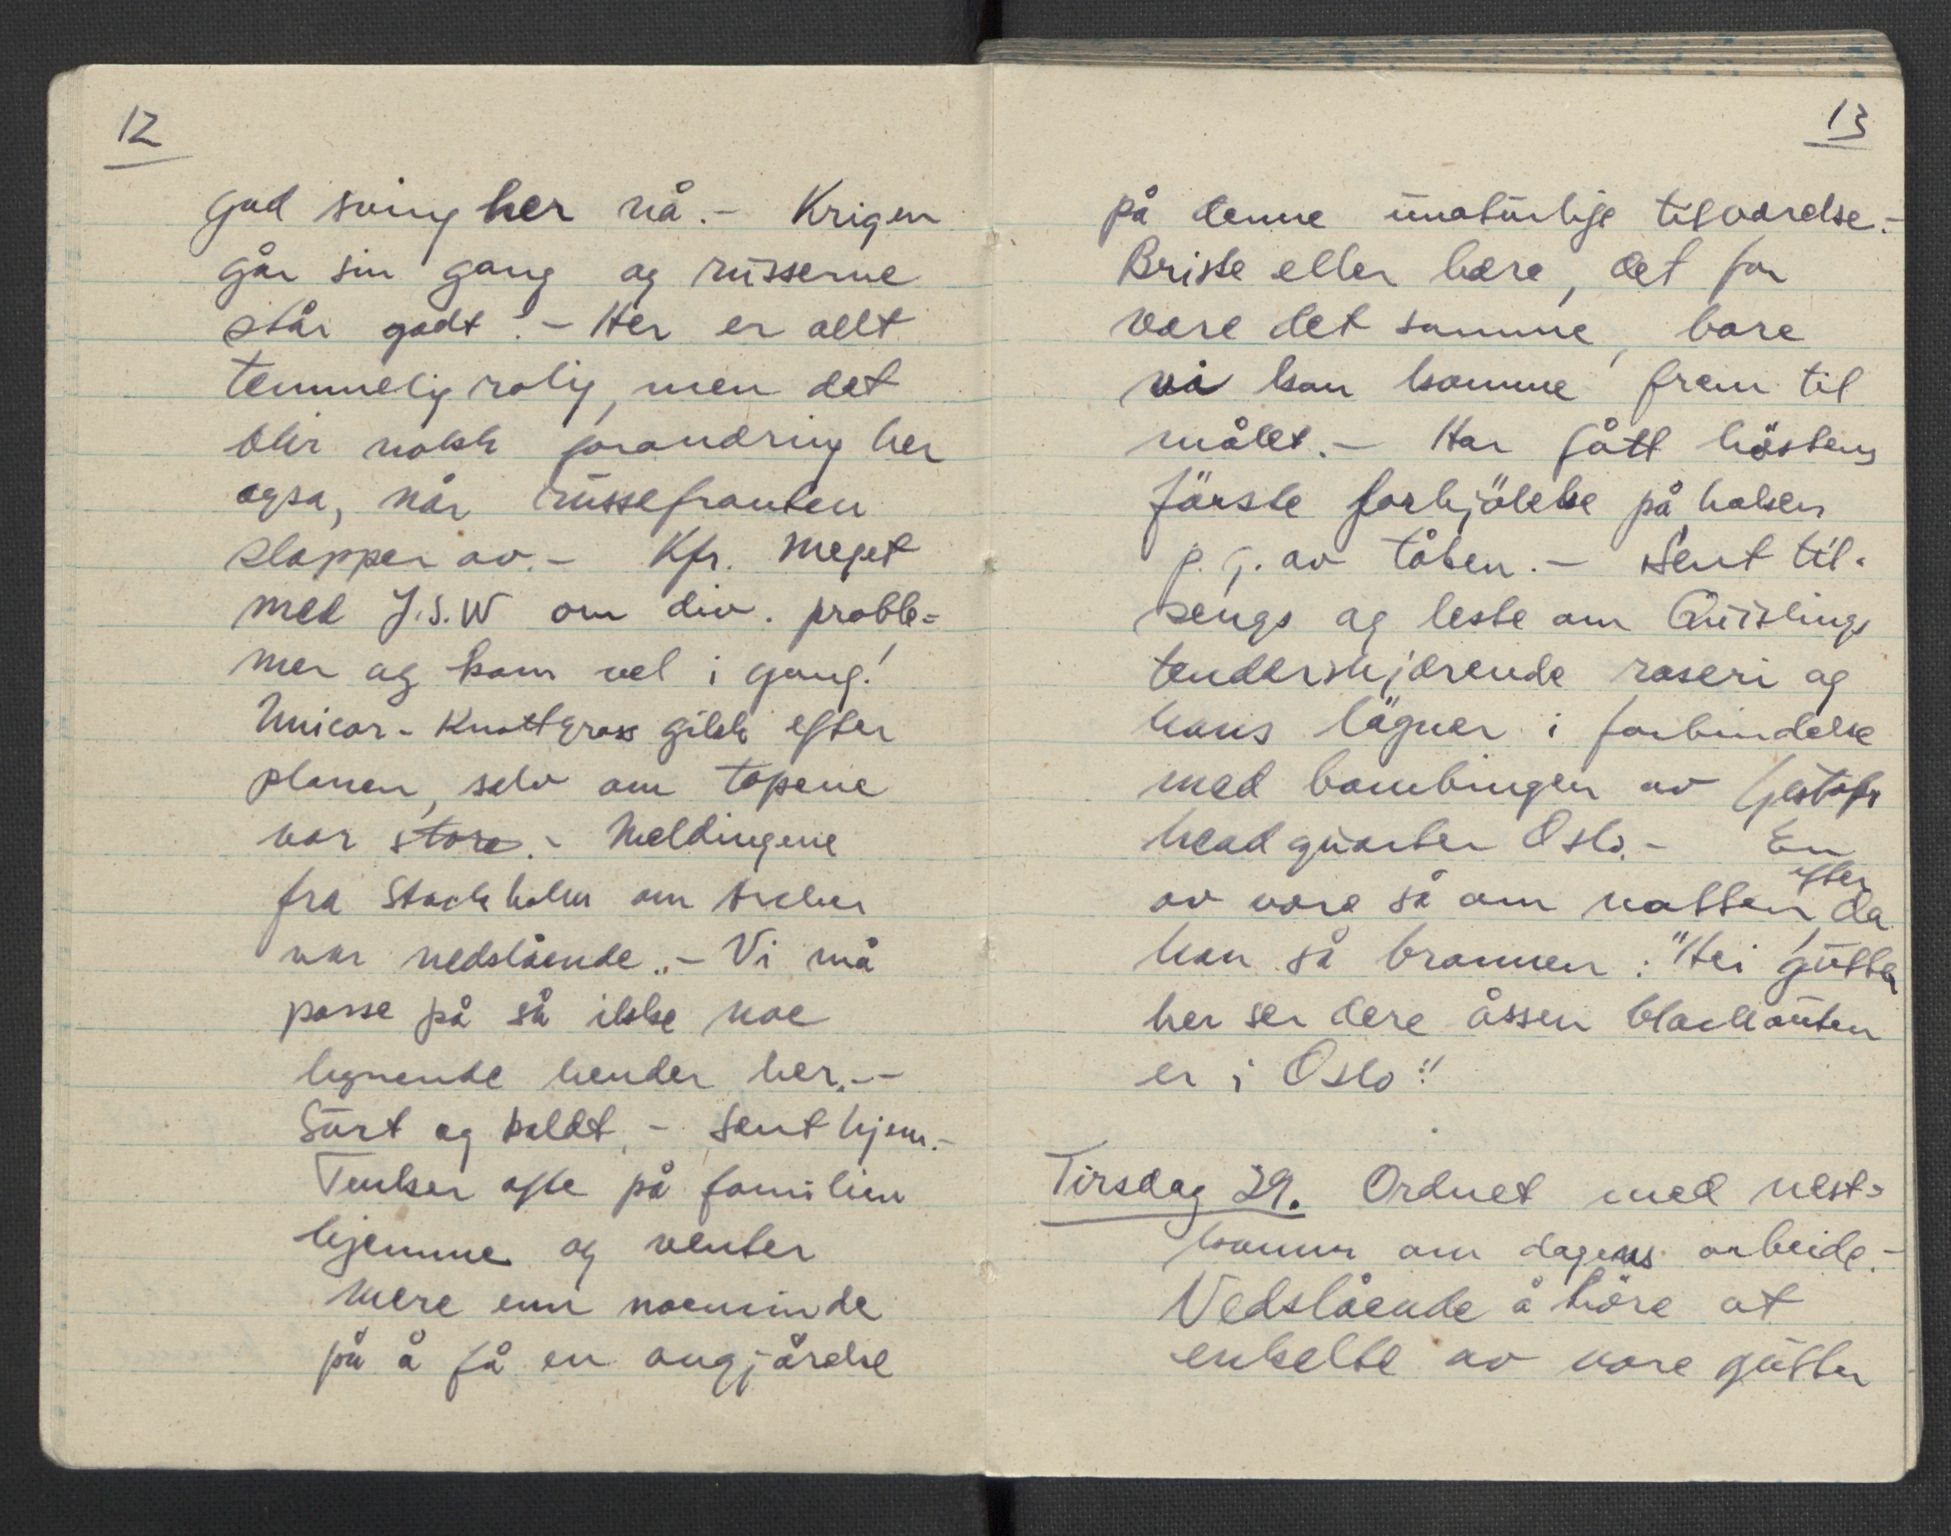 12
god sving her nå.- Krigen
går sin gang og russerne
står godt.- Her er allt
temmelig rolig, men det
blir nokk forandring her
også, når russefronten
slapper av.- Kfr. meget
med J.S.W om div. proble=
mer og kom vel i gang!
Unicor - Knottgrass gikk efter
planen, selv om tapene
var store.- Meldingene
fra Stockholm om Archer
var nedslående.- Vi må
passe på så ikke noe
lignende hender her.--
Surt og koldt.- Sent hjem.-
Tenker ofte på familien
hjemme og venter
mere enn noensinde
på å få en avgjørelse
13
på denne unaturlige tilværelse.-
Briste eller bære, det får
være det samme, bare
vi kan komme frem til
målet.- Har fått høstens
første forkjølelse på halsen
p.g. av tåken.- Sent til-
sengs og leste om Quislings
tenderskjærende raseri og
hans løgner i forbindelse
med bombingen av Gestapo
headquarter Oslo.- En
av våre sa om natten efter, da
han så brannen: "Hei gutter
her ser dere åssen blackouten
er i Oslo"!
Tirsdag 29. Ordnet med nest=
komm om dagens arbeide.-
Nedslående å höre at
enkelte av våre gutter